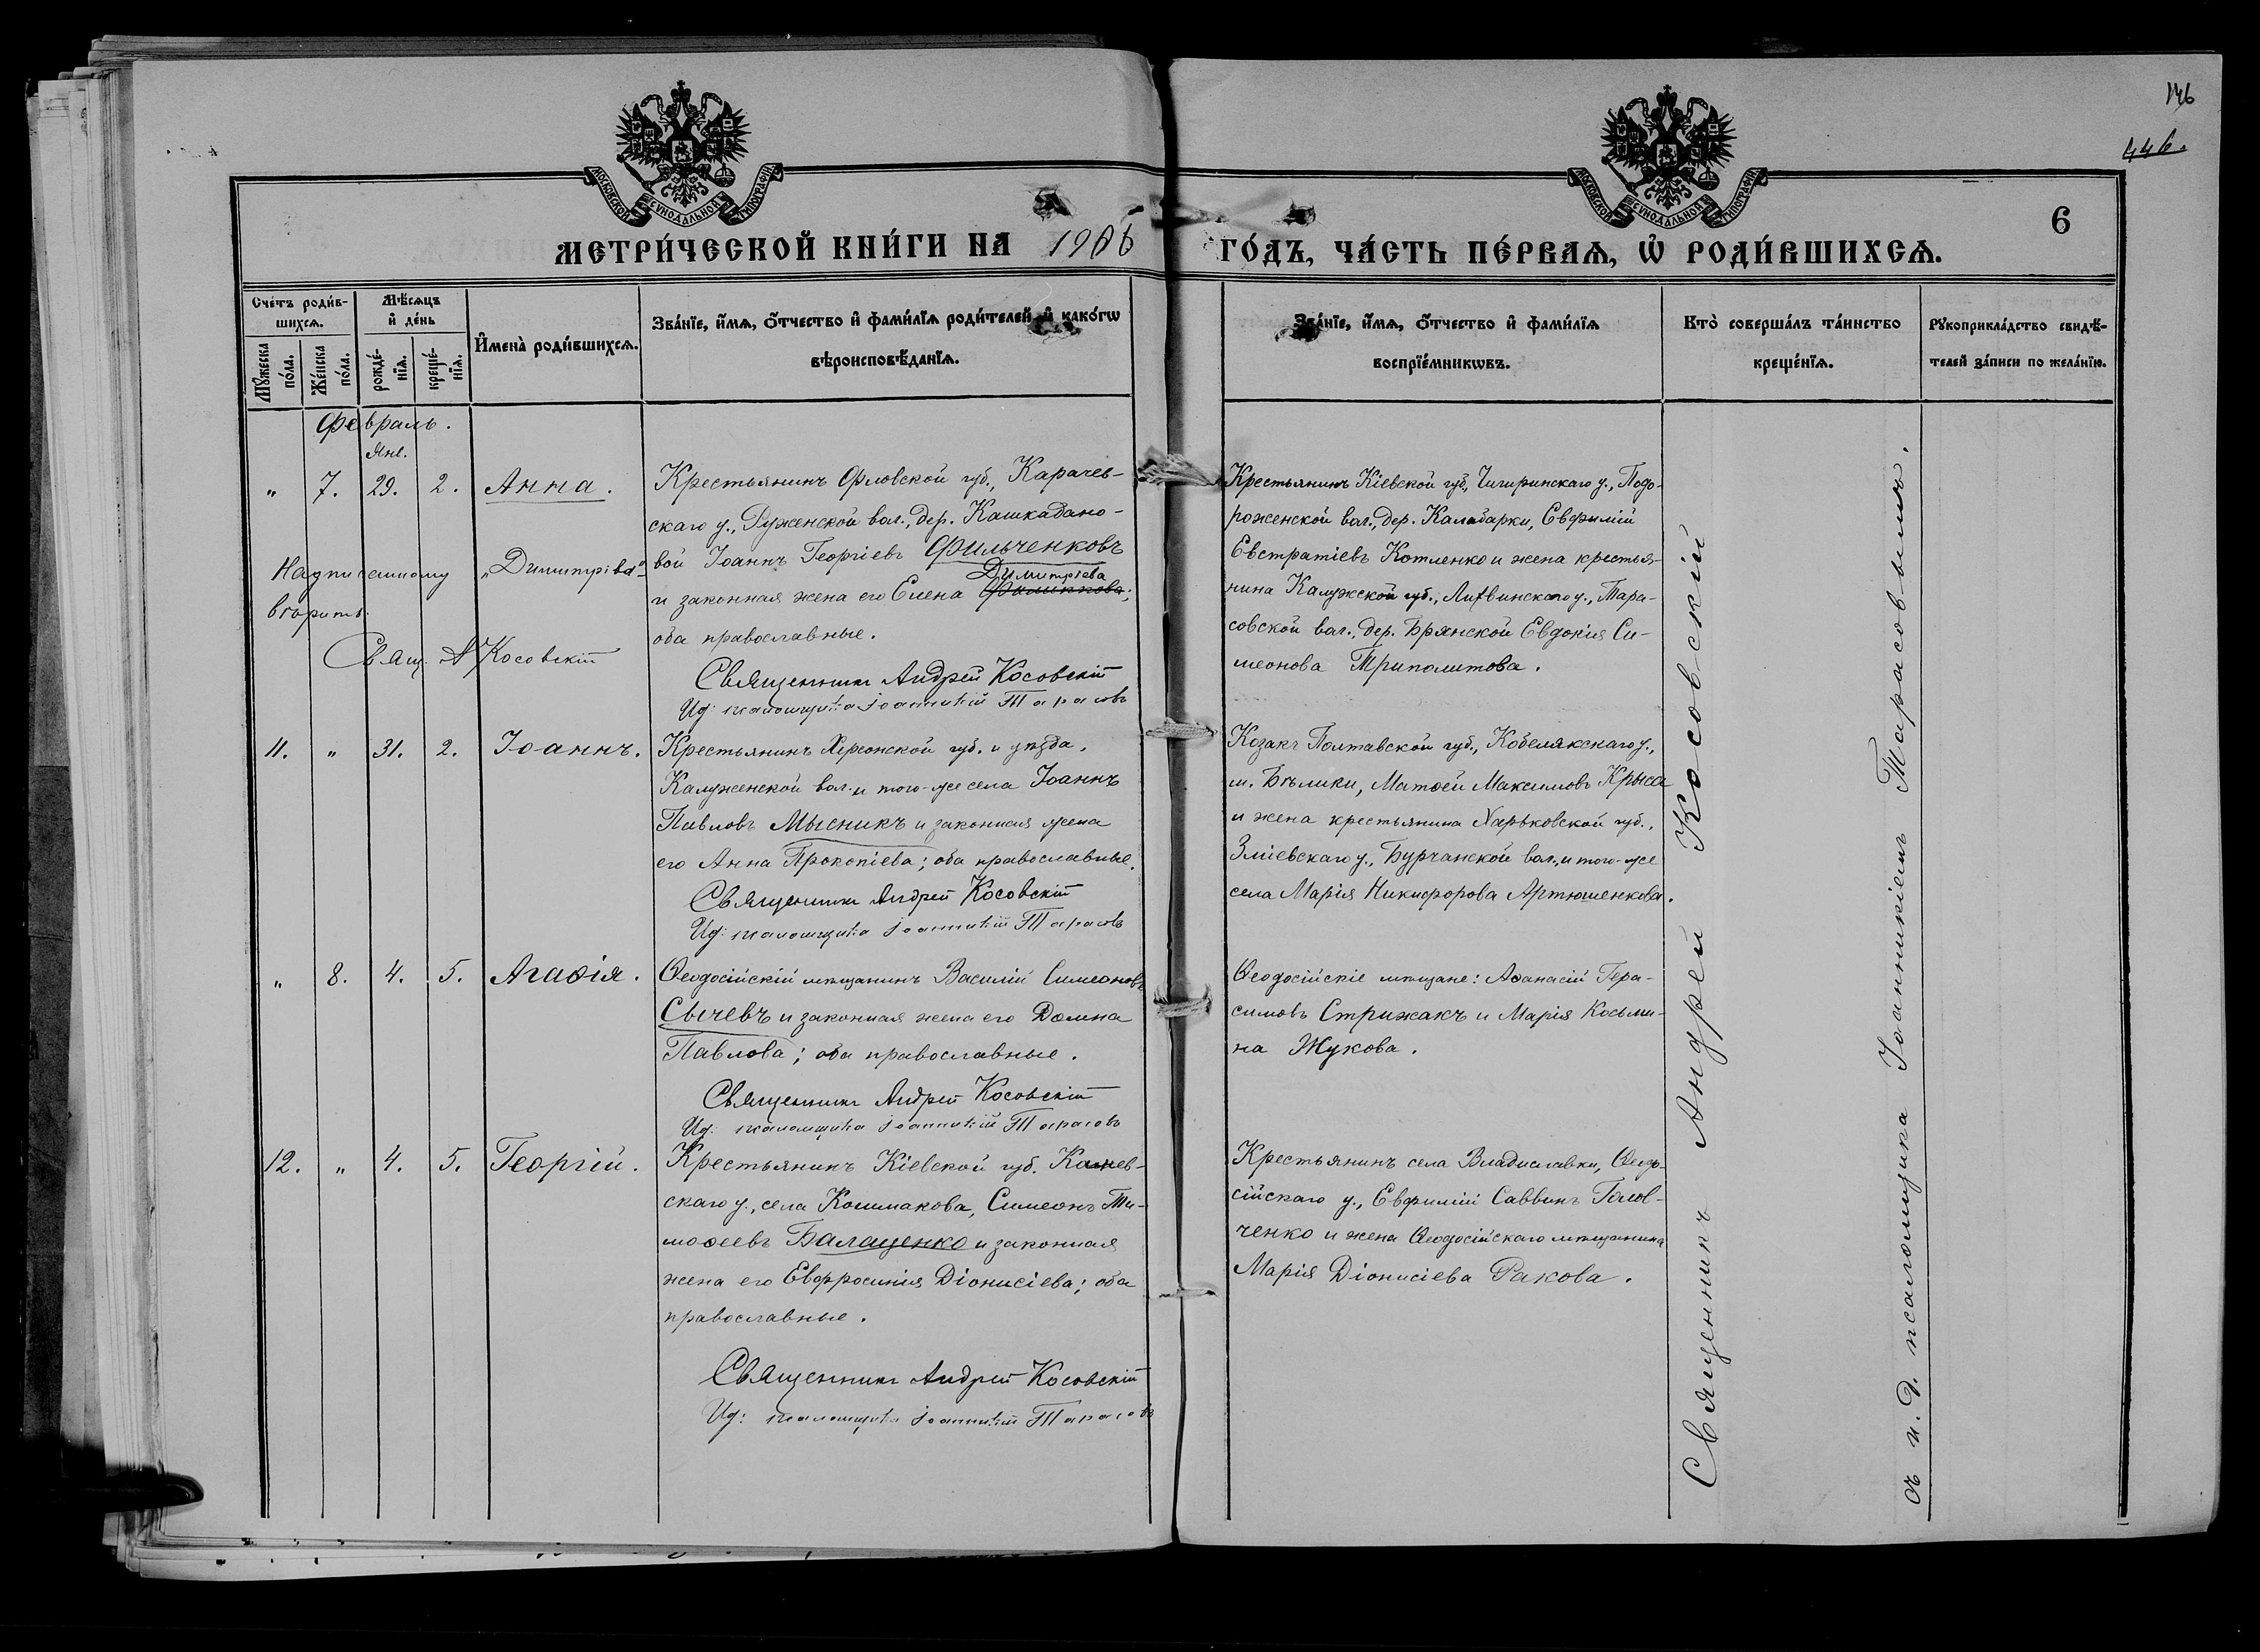 146
446.
МОСКОВСКОЙ СѴНОДАЛЬНОЙ ТИПОГРАФІИ
МОСКОВСКОЙ СѴНОДАЛЬНОЙ ТИПОГРАФІИ
6
МЕТРИ́ЧЕСКОЙ КНИ́ГИ НА 1906 ГО́ДЪ, ЧА́СТЬ ПЕ́РВАѦ, Ѡ҆ РОДИ́ВШИХСѦ.
Сче́тъ роди́в-
шихсѧ.
Мѣ́сѧцъ
и҆ де́нь
Мꙋ́жеска
по́ла.
Же́нска
по́ла.
рожде́-
нїѧ.
креще́-
нїѧ.
И҆мена̀ роди́вшихсѧ.
Зва́нїе, и҆́мѧ, о҆́тчество и҆ фами́лїѧ роди́телей и҆ како́гѡ
вѣроисповѣ́данїѧ.
Зва́нїе, и҆́мѧ, о҆́тчество и҆ фами́лїѧ
воспрїе́мникѡвъ.
Кто̀ соверша́лъ та́инство
креще́нїѧ.
Рꙋкоприкла́дство свидѣ́-
телей за́писи по жела́нїю.
Февраль.
Янв.
" 7. 29. 2. Анна.
Крестьянинъ Орловской губ., Карачев-
скаго у., Руженской вол., дер. Кашкадано-
вой Іоаннъ Георгіевъ Фильченковъ
Димитріева
и законная жена его Елена
оба православные.
Священникъ Андрей Косовскій
Ид: псаломщика Іоанникій Тарасовъ
Надписанному „Димитріева"
вѣрить.
Свящ. А Косовскій
Крестьянинъ Кіевской губ., Чигиринскаго у., Подо-
роженской вол., дер. Калабарки, Евфимій
Евстратіевъ Котленко и жена крестья-
нина Калужской губ., Лихвинскаго у., Тара-
совской вол., дер. Брянской Евдокія Си-
меонова Триполитова.
11. " 31. 2. Іоаннъ.
Крестьянинъ Херсонской губ. и уѣзда,
Калуженской вол. и того-же села Іоаннъ
Павловъ Мысникъ и законная жена
его Анна Прокопіева; оба православные.
Священникъ Андрей Косовскій
Ид: псаломщика Іоанникій Тарасовъ
Козакъ Полтавской губ., Кобелякскаго у.,
м. Бѣлики, Матѳей Максимовъ Крысса
и жена крестьянина Харьковской губ.,
Зміевскаго у., Бурчанской вол. и того-же
села Марія Никифорова Артюшенкова.
" 8. 4. 5. Агаѳія.
Ѳеодосійскій мѣщанинъ Василій Симеоновъ
Сычевъ и законная жена его Домна
Павлова; оба православные.
Священникъ Андрей Косовскій
Ид: псаломщика Іоанникій Тарасовъ
Ѳеодосійскіе мѣщане: Аѳанасій Гера-
симовъ Стрижакъ и Марія Косьми-
на Жукова.
12. " 4. 5. Георгій.
Крестьянинъ Кіевской губ. Канев-
скаго у., села Кошмакова, Симеонъ Ти-
моѳеевъ Балаценко и законная
жена его Евфросинія Діонисіева; оба
православные.
Священникъ Андрей Косовскій
Ид: псаломщика Іоанникій Тарасовъ
Крестьянинъ села Владиславки, Ѳеодо-
сійскаго у., Евфимій Саввинъ Голов-
ченко и жена Ѳеодосійскаго мѣщанина
Марія Діонисіева Ракова.
Священникъ Андрей Косовскій
съ и. д. псаломщика Іоанникіемъ Тарасовымъ.